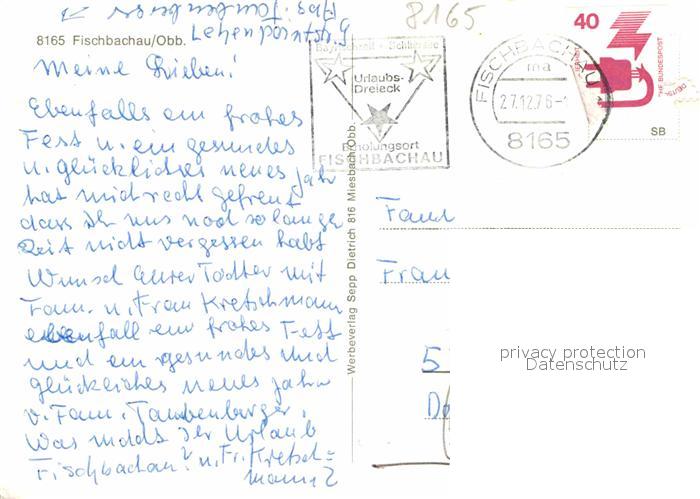 8165
Abs: Taubenberger
Leyenpointstr. 9
8165 Fischbachau/Obb.
Meine Lieben!
Ebenfalls ein frohes
Fest u. ein gesundes
u. glückliches neues Jahr
hat mich recht gefreut
dass ihr uns nach so langer
Zeit nicht vergessen habt
Wunsch Eurer Tochter mit
Fam. u. Frau Kretschmann
ebenfall ein frohes Fest
und ein gesundes und
glückliches neues Jahr
v. Fam. Taubenberger.
Was macht der Urlaub
Fischbachau? u. Fr. Kretsch=
mann?
Werbeverlag Sepp Dietrich 816 Miesbach/Obb.
Bayrischzell - Schliersee
Urlaubs-
Dreieck
Erholungsort
FISCHBACHAU
FISCHBACHAU
ma
27.12.76-
8165
40
DEUTSCHE BUNDESPOST
SB
Fam
Frau
5
privacy protection
Datenschutz